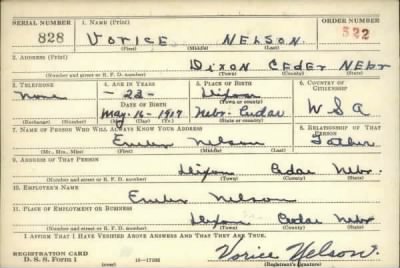 SERIAL NUMBER 1. NAME (Print) ORDER NUMBER
828 VORICE NELSON 522
(First) (Middle) (Last)
2. ADDRESS (Print)
DIXON CEDER NEBR
(Number and street or R. F. D. number) (Town) (County) (State)
3. TELEPHONE 4. AGE IN YEARS 5. PLACE OF BIRTH 6. COUNTRY OF CITIZENSHIP
None -22- Dixon
DATE OF BIRTH (Town or county)
May-16-1917 Nebr. Cedar U S A
(Exchange) (Number) (Mo.) (Day) (Yr.) (State or country)
7. NAME OF PERSON WHO WILL ALWAYS KNOW YOUR ADDRESS 8. RELATIONSHIP OF THAT PERSON
Nelson Father
(Mr., Mrs., Miss) (First) (Middle) (Last)
9. ADDRESS OF THAT PERSON
Dixon Cedar Nebr.
(Number and street or R. F. D. number) (Town) (County) (State)
10. EMPLOYER'S NAME
Nelson
11. PLACE OF EMPLOYMENT OR BUSINESS
Dixon Cedar Nebr
(Number and street or R. F. D. number) (Town) (County) (State)
I AFFIRM THAT I HAVE VERIFIED ABOVE ANSWERS AND THAT THEY ARE TRUE.
REGISTRATION CARD
D. S. S. Form 1 (over) Vorice Nelson
(Registrant's signature)